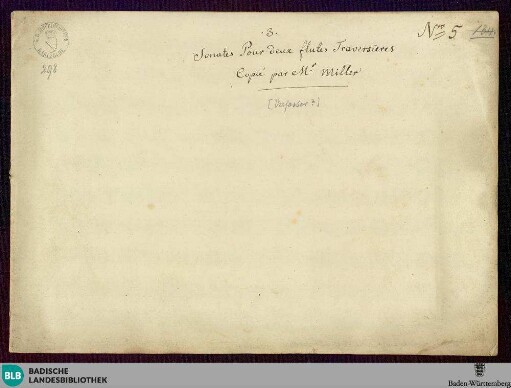 ·3·
Sonates Pour deux flutes Traversieres
Copié par Mr. Miller
[Verfasser?]
Nro 5
298
BLB BADISCHE
LANDESBIBLIOTHEK
Baden-Württemberg